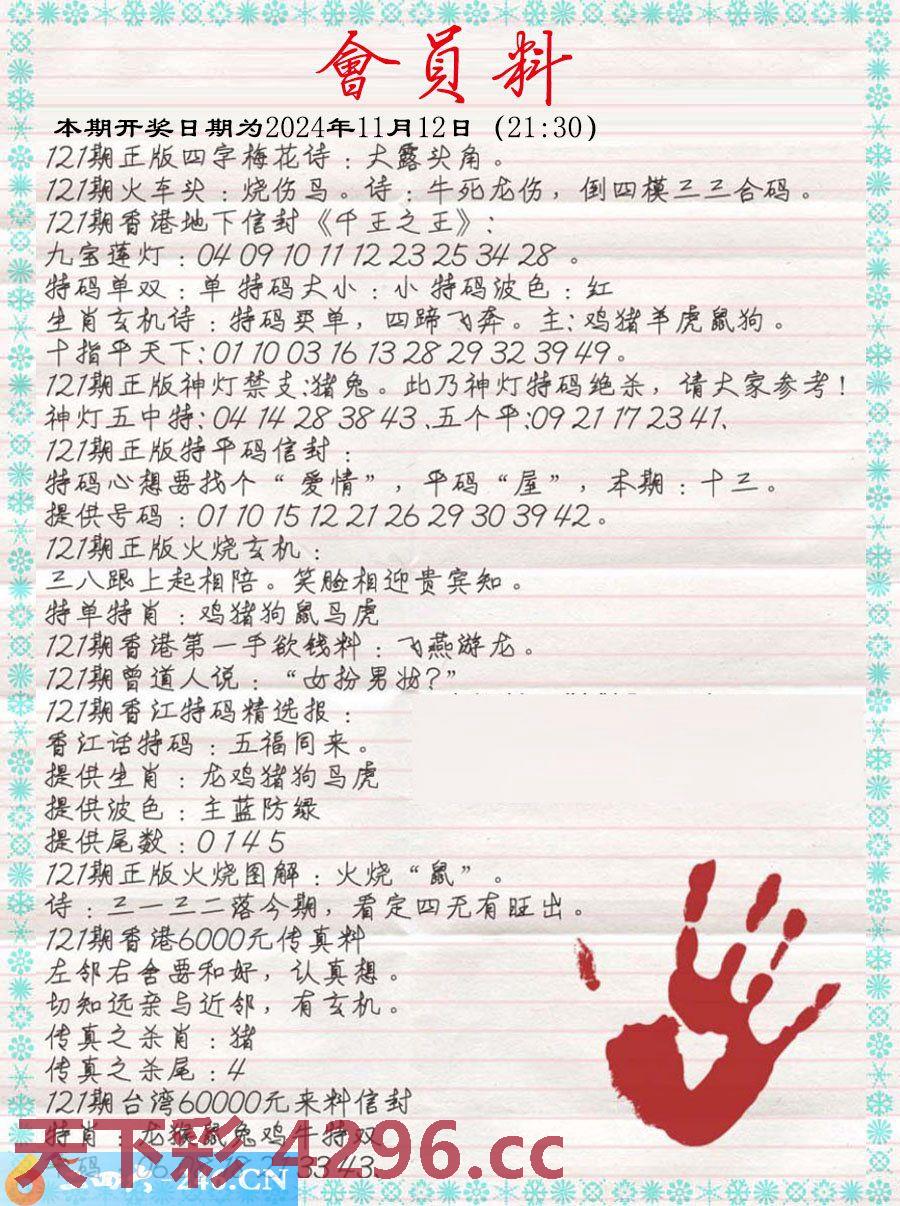 會員料
本期开奖日期为2024年11月12日（21:30）
121期正版四字梅花诗：大露头角。
121期火车头：烧伤鸟。诗：牛死龙伤，倒四模三三合码。
121期香港地下信封《千王之王》:
九宝莲灯：04 09 10 11 12 23 25 34 28 。
特码单双：单 特码大小：小 特码波色：红
生肖玄机诗：特码买单，四蹄飞奔。主: 鸡猪羊虎鼠狗。
十指平天下: 01 10 03 16 13 28 29 32 39 49。
121期正版神灯禁支:猪兔。此乃神灯特码绝杀，请大家参考！
神灯五中特: 04 14 28 38 43 、五个平:09 21 17 23 41、
121期正版特平码信封：
特码心想要找个“爱情”，平码“屋”，本期：十三。
提供号码：01 10 15 12 21 26 29 30 39 42。
121期正版火烧玄机：
三八跟上起相陪。笑脸相迎贵宾知。
特单特肖：鸡猪狗鼠马虎
121期香港第一手欲钱料：飞燕游龙。
121期曾道人说：“女扮男妆?”
121期香江特码精选报：
香江话特码：五福同来。
提供生肖：龙鸡猪狗马虎
提供波色：主蓝防绿
提供尾数：0 1 4 5
121期正版火烧图解：火烧“鼠”。
诗：三一三二落今期，看定四无有旺出。
121期香港6000元传真料
左邻右舍要和好，认真想。
切知远亲与近邻，有玄机。
传真之杀肖：猪
传真之杀尾：4
121期台湾60000元来料信封
特肖：龙猴鼠兔鸡牛特双
33 43
天下彩 4296.cc
246.CN